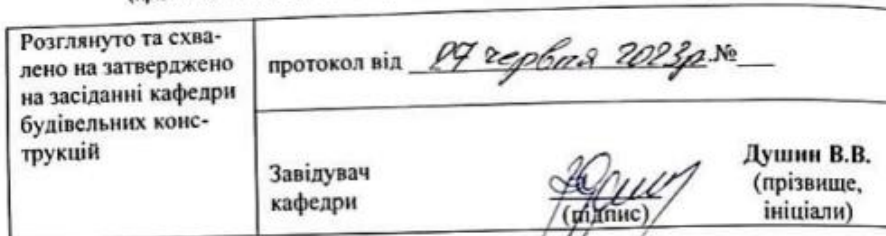 Розглянуто та схва-
лено на затверджено
на засіданні кафедри
будівельних конс-
трукцій
протокол від 27 червня 2023р.№___
Завідувач
кафедри
(підпис)
Душин В.В.
(прізвище,
ініціали)